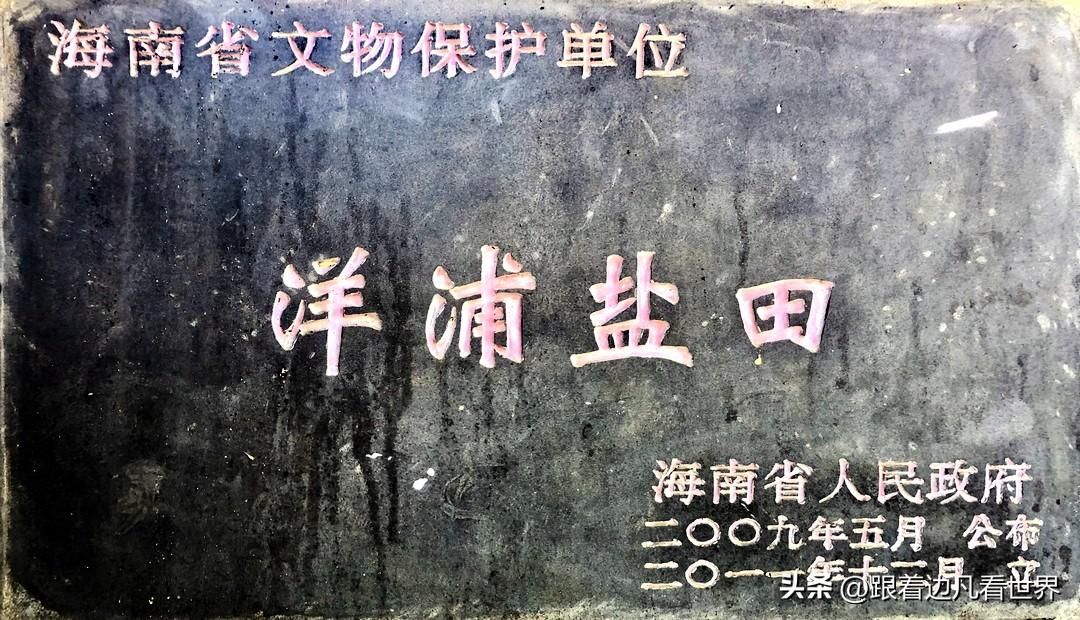 海南省文物保护单位
洋浦盐田
海南省人民政府
二〇〇九年五月 公布
二〇一一年十二月 立
头条 @跟着边凡看世界